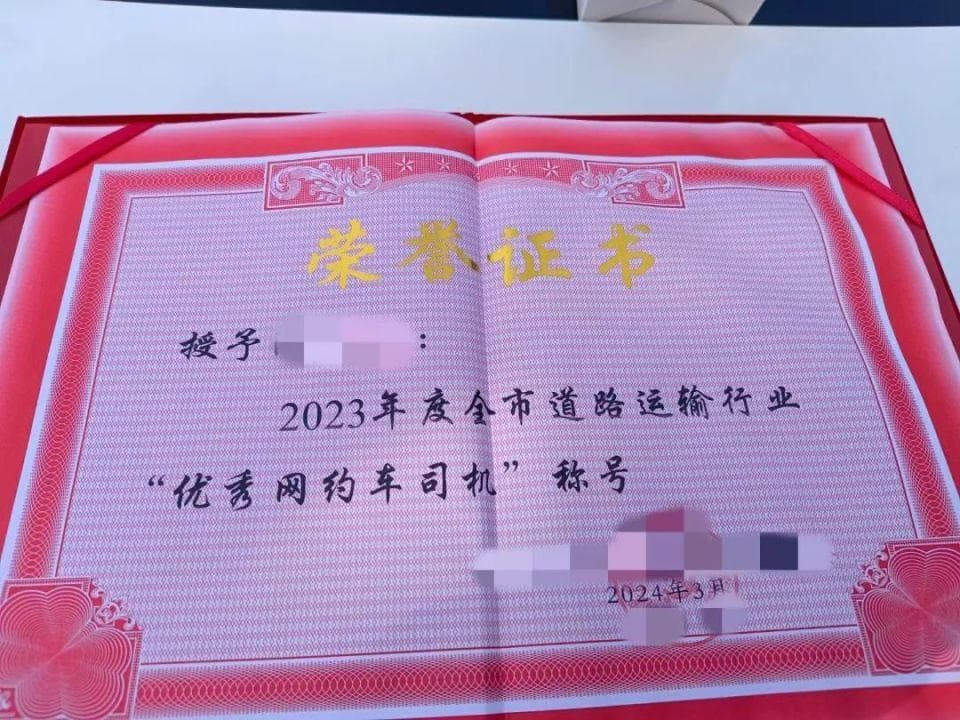 荣誉证书
授予 :
2023年度全市道路运输行业
“优秀网约车司机”称号
2024年3月